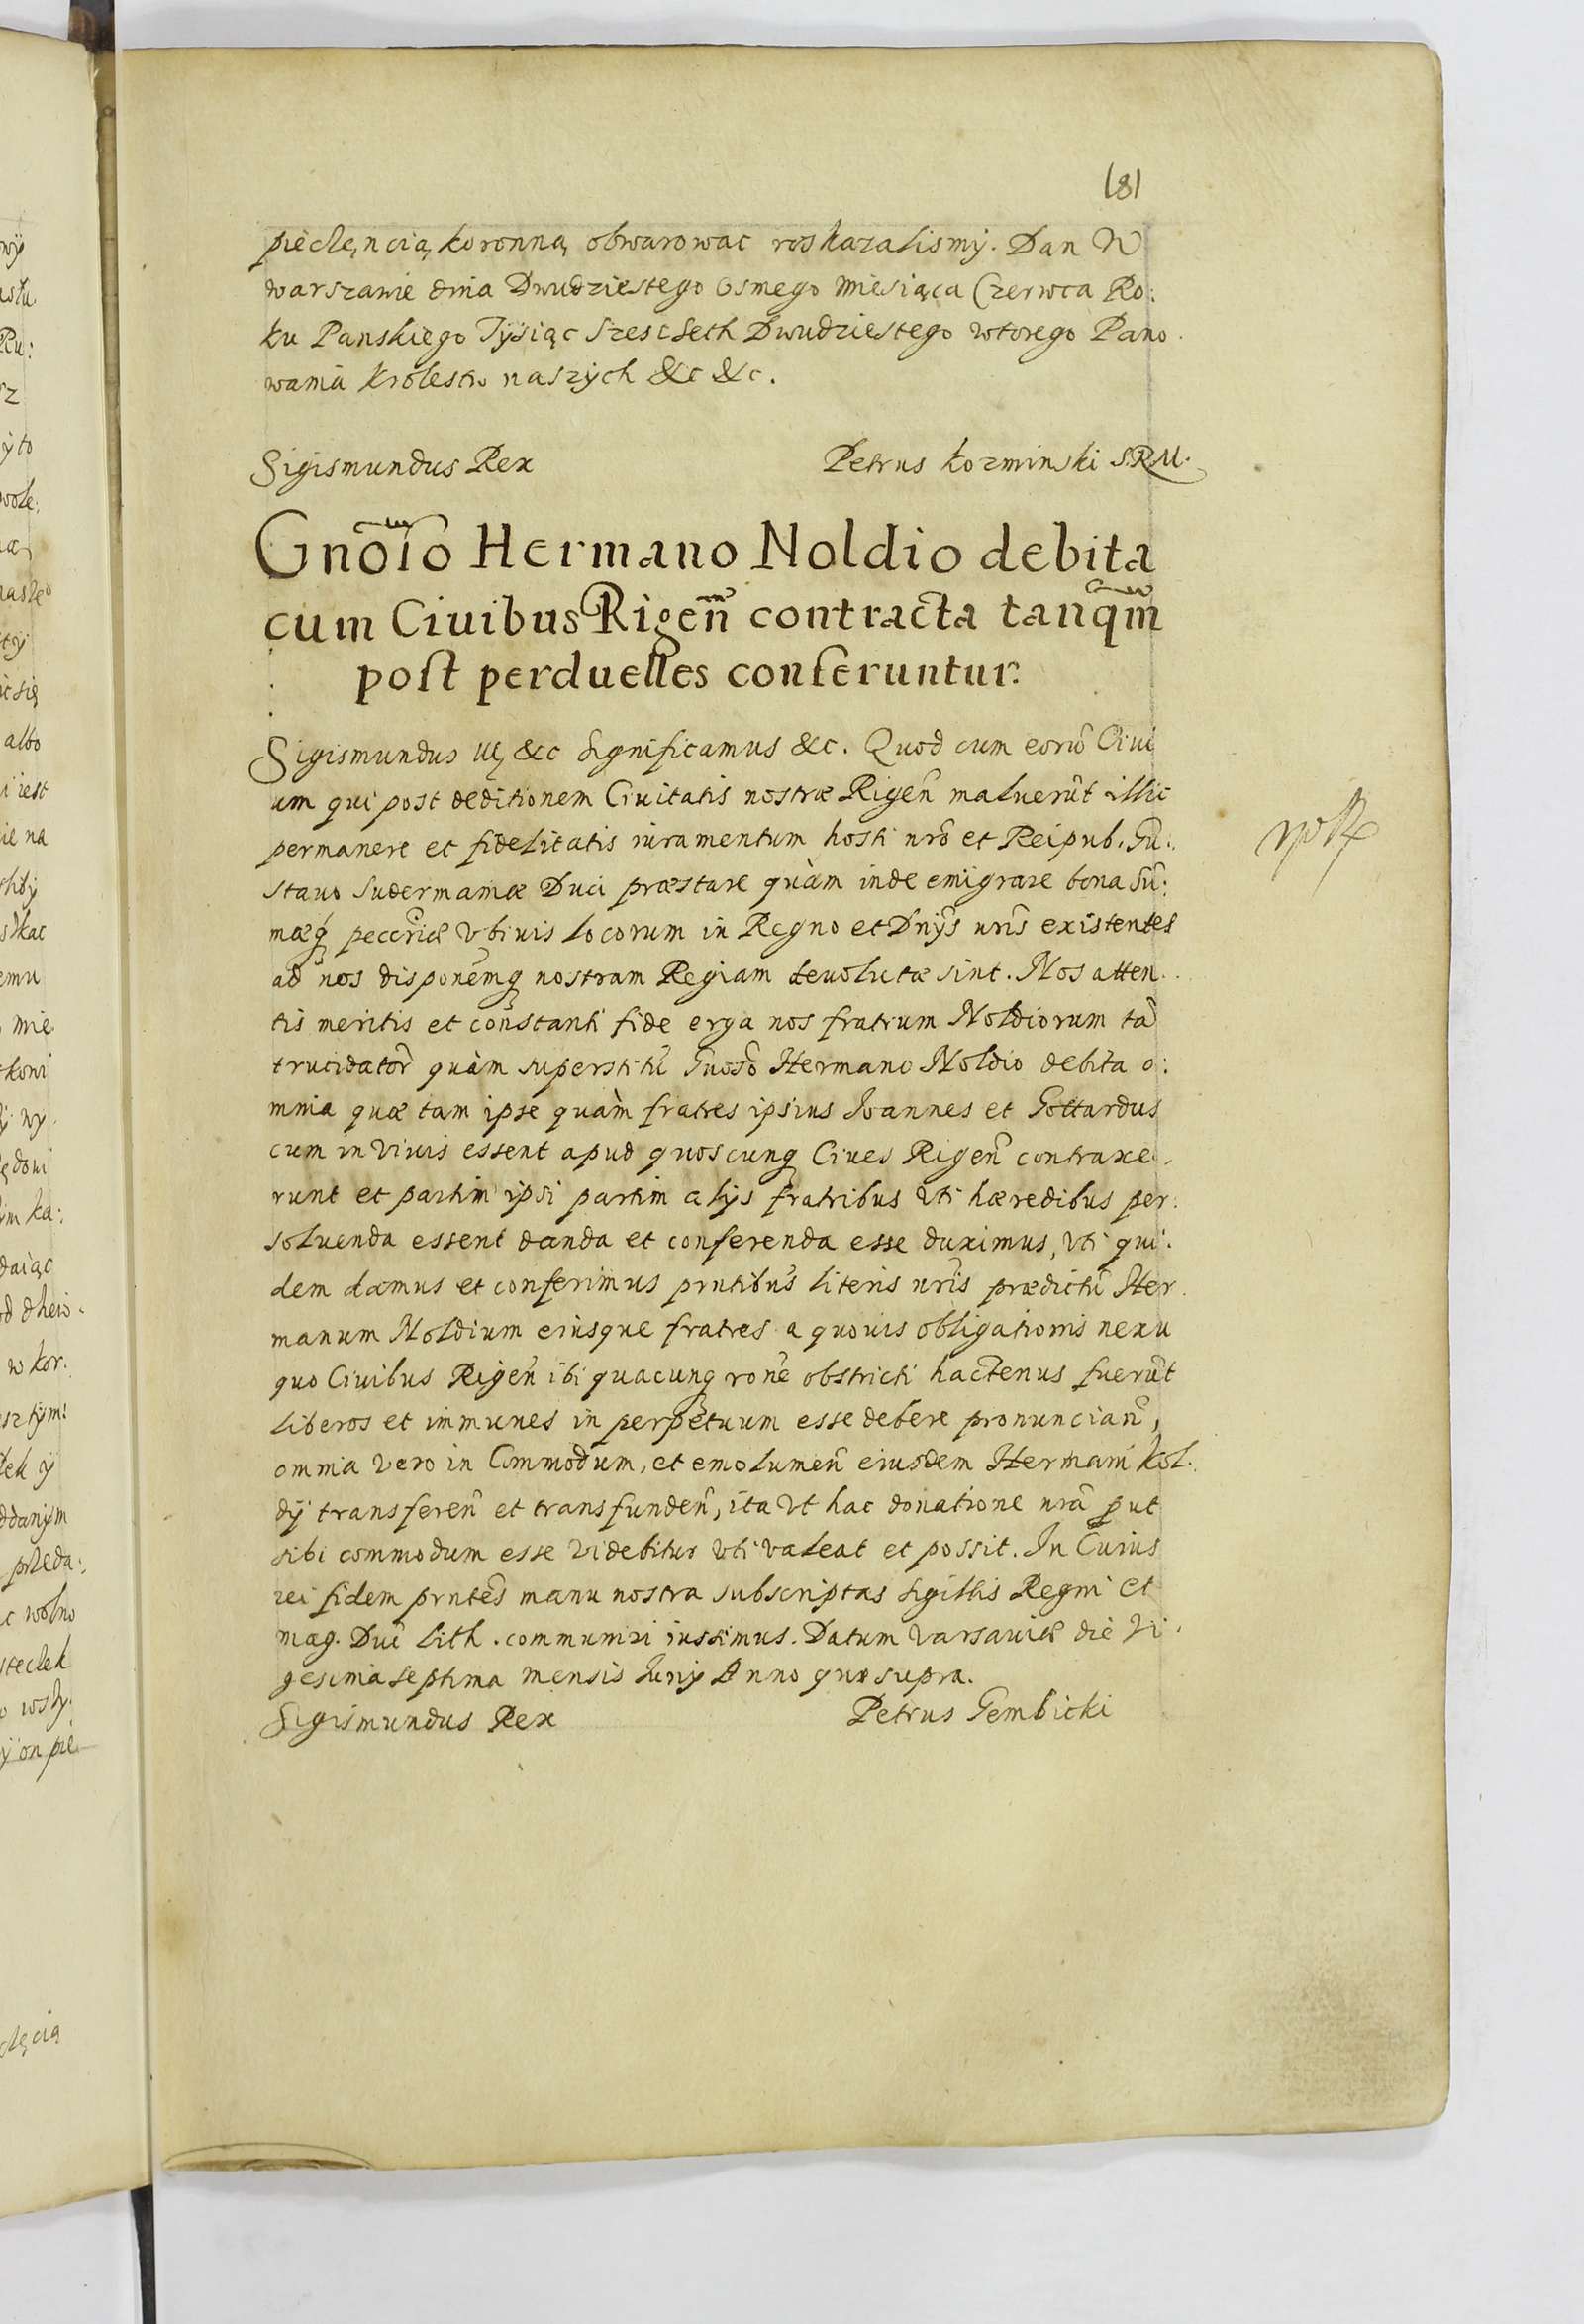 181
pieczęncią koronną obwarowac roskazalismÿ. Dan W
warszawie dnia Dwudziestego Osmego Miesiąca Czerwca Ro:
ku Panskiego Tÿsiąc Szesc Seth Dwudziestego wtorego Pano
wania Krolestw naszÿch &c &c.
Sigismundus Rex
Petrus Kozminski SRM.
Gnõso Hermano Noldio debita
cum Ciuibus Rigeñ contracta tanq̃m
post perduelles conferuntur.
Sigismundus III &c Significamus &c. Quod cum eorũ Ciui
um qui post deditionem Ciuitatis nostræ Rigeñ maluerũt illic
permanere et fidelitatis iuramentum hosti nrõ et Reipub. Gu:
stauo Sudermaniæ Duci præstare quàm inde emigrare bona Sũ:
mæq; peccũiæ vbiuis locorum in Regno et Dñijs nrĩs existentes
ad nos disponẽmq; nostram Regiam deuolutæ sint. Nos atten
tis meritis et constanti fide erga nos fratrum Noldiorum tã
trucidatoȓ quàm superstitũ Gnosõ Hermano Noldio debita o:
mnia quæ tam ipse quàm fratres ipsius Joannes et Gottardus
cum in viuis essent apud quoscunq; Ciues Rigeñ contraxe
runt et partim ipsi partim alijs fratribus vti hæredibus per:
soluenda essent danda et conferenda esse duximus, vti qui:
dem damus et conferimus prntibũs literis nrĩs prædictũ Her
manum Noldium eiusque fratres a quouis obligationis nexu
quo Ciuibus Rigeñ ibi quacunq; ronẽ obstricti hactenus fuerũt
liberos et immunes in perpetuum esse debere pronunciañ,
omnia vero in Commodum, et emolumeñ eiusdem Hermani Nol
dij transfereñ et transfundeñ, ita vt hac donatione nrã put
sibi commodum esse videbitur vti valeat et possit. In Cuius
rei fidem prntẽs manu nostra subscriptas Sigillis Regni et
mag. Duĩ Lith. communiri iussimus. Datum Varsauiæ die Vi
gesima septima Mensis Junij Anno quo supra.
Sigismundus Rex
Petrus Gembicki